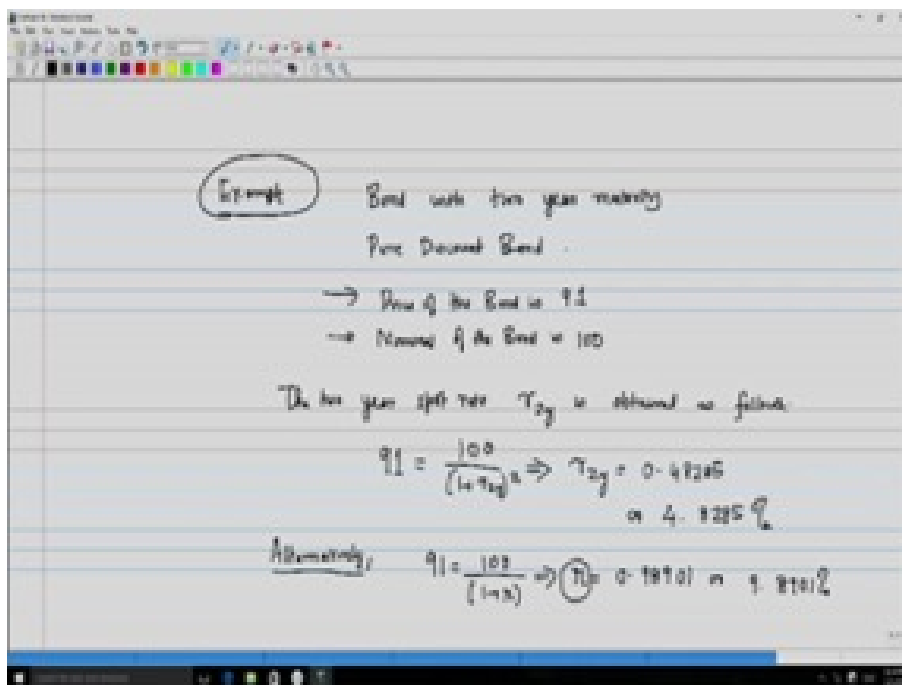 Example
Bond with two year maturity
Pure Discount Bond.
→ Price of the Bond is 91
→ Nominal of the Bond is 100
The two year spot rate r_2y is obtained as follows
91 = 100 / (1+r_2y)^2 ⇒ r_2y = 0.48285
or 4.8285%
Alternatively, 91 = 100 / (1+r) ⇒ r = 0.98901 or 9.8901%